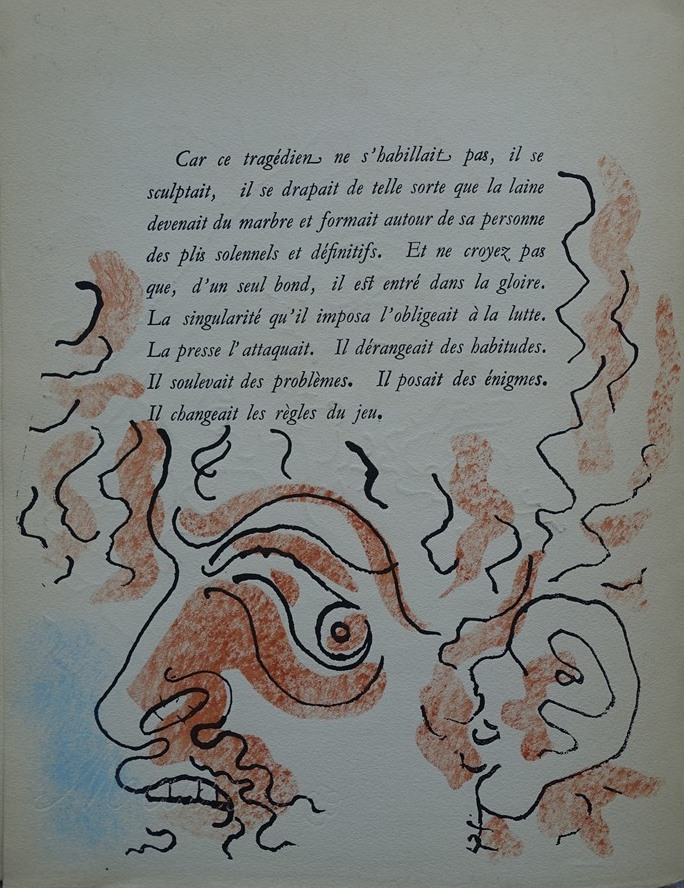 Car ce tragédien ne s'habillait pas, il se
sculptait, il se drapait de telle sorte que la laine
devenait du marbre et formait autour de sa personne
des plis solennels et définitifs. Et ne croyez pas
que, d'un seul bond, il est entré dans la gloire.
La singularité qu'il imposa l'obligeait à la lutte.
La presse l'attaquait. Il dérangeait des habitudes.
Il soulevait des problèmes. Il posait des énigmes.
Il changeait les règles du jeu.